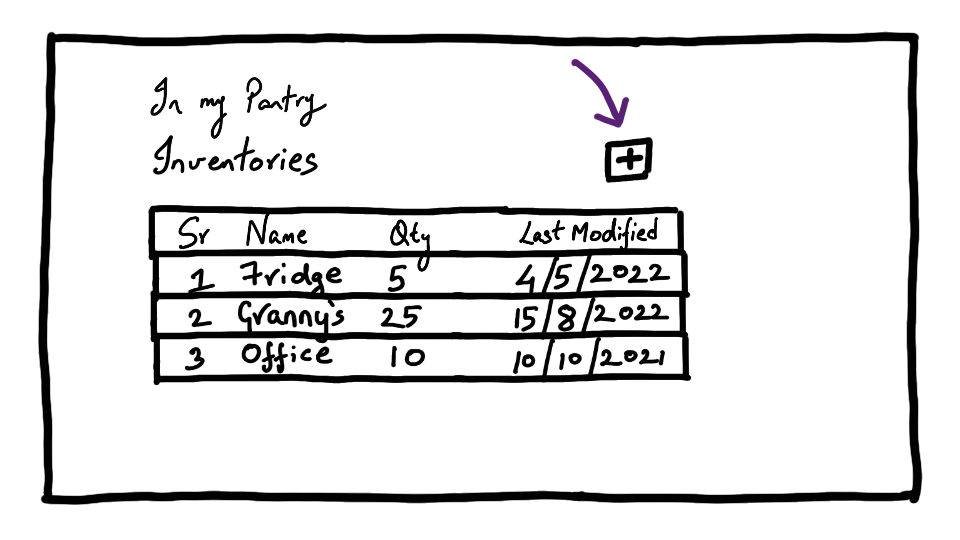 In my Pantry
Inventories
+
Sr Name Qty Last Modified
1 Fridge 5 4/5/2022
2 Granny's 25 15/8/2022
3 Office 10 10/10/2021